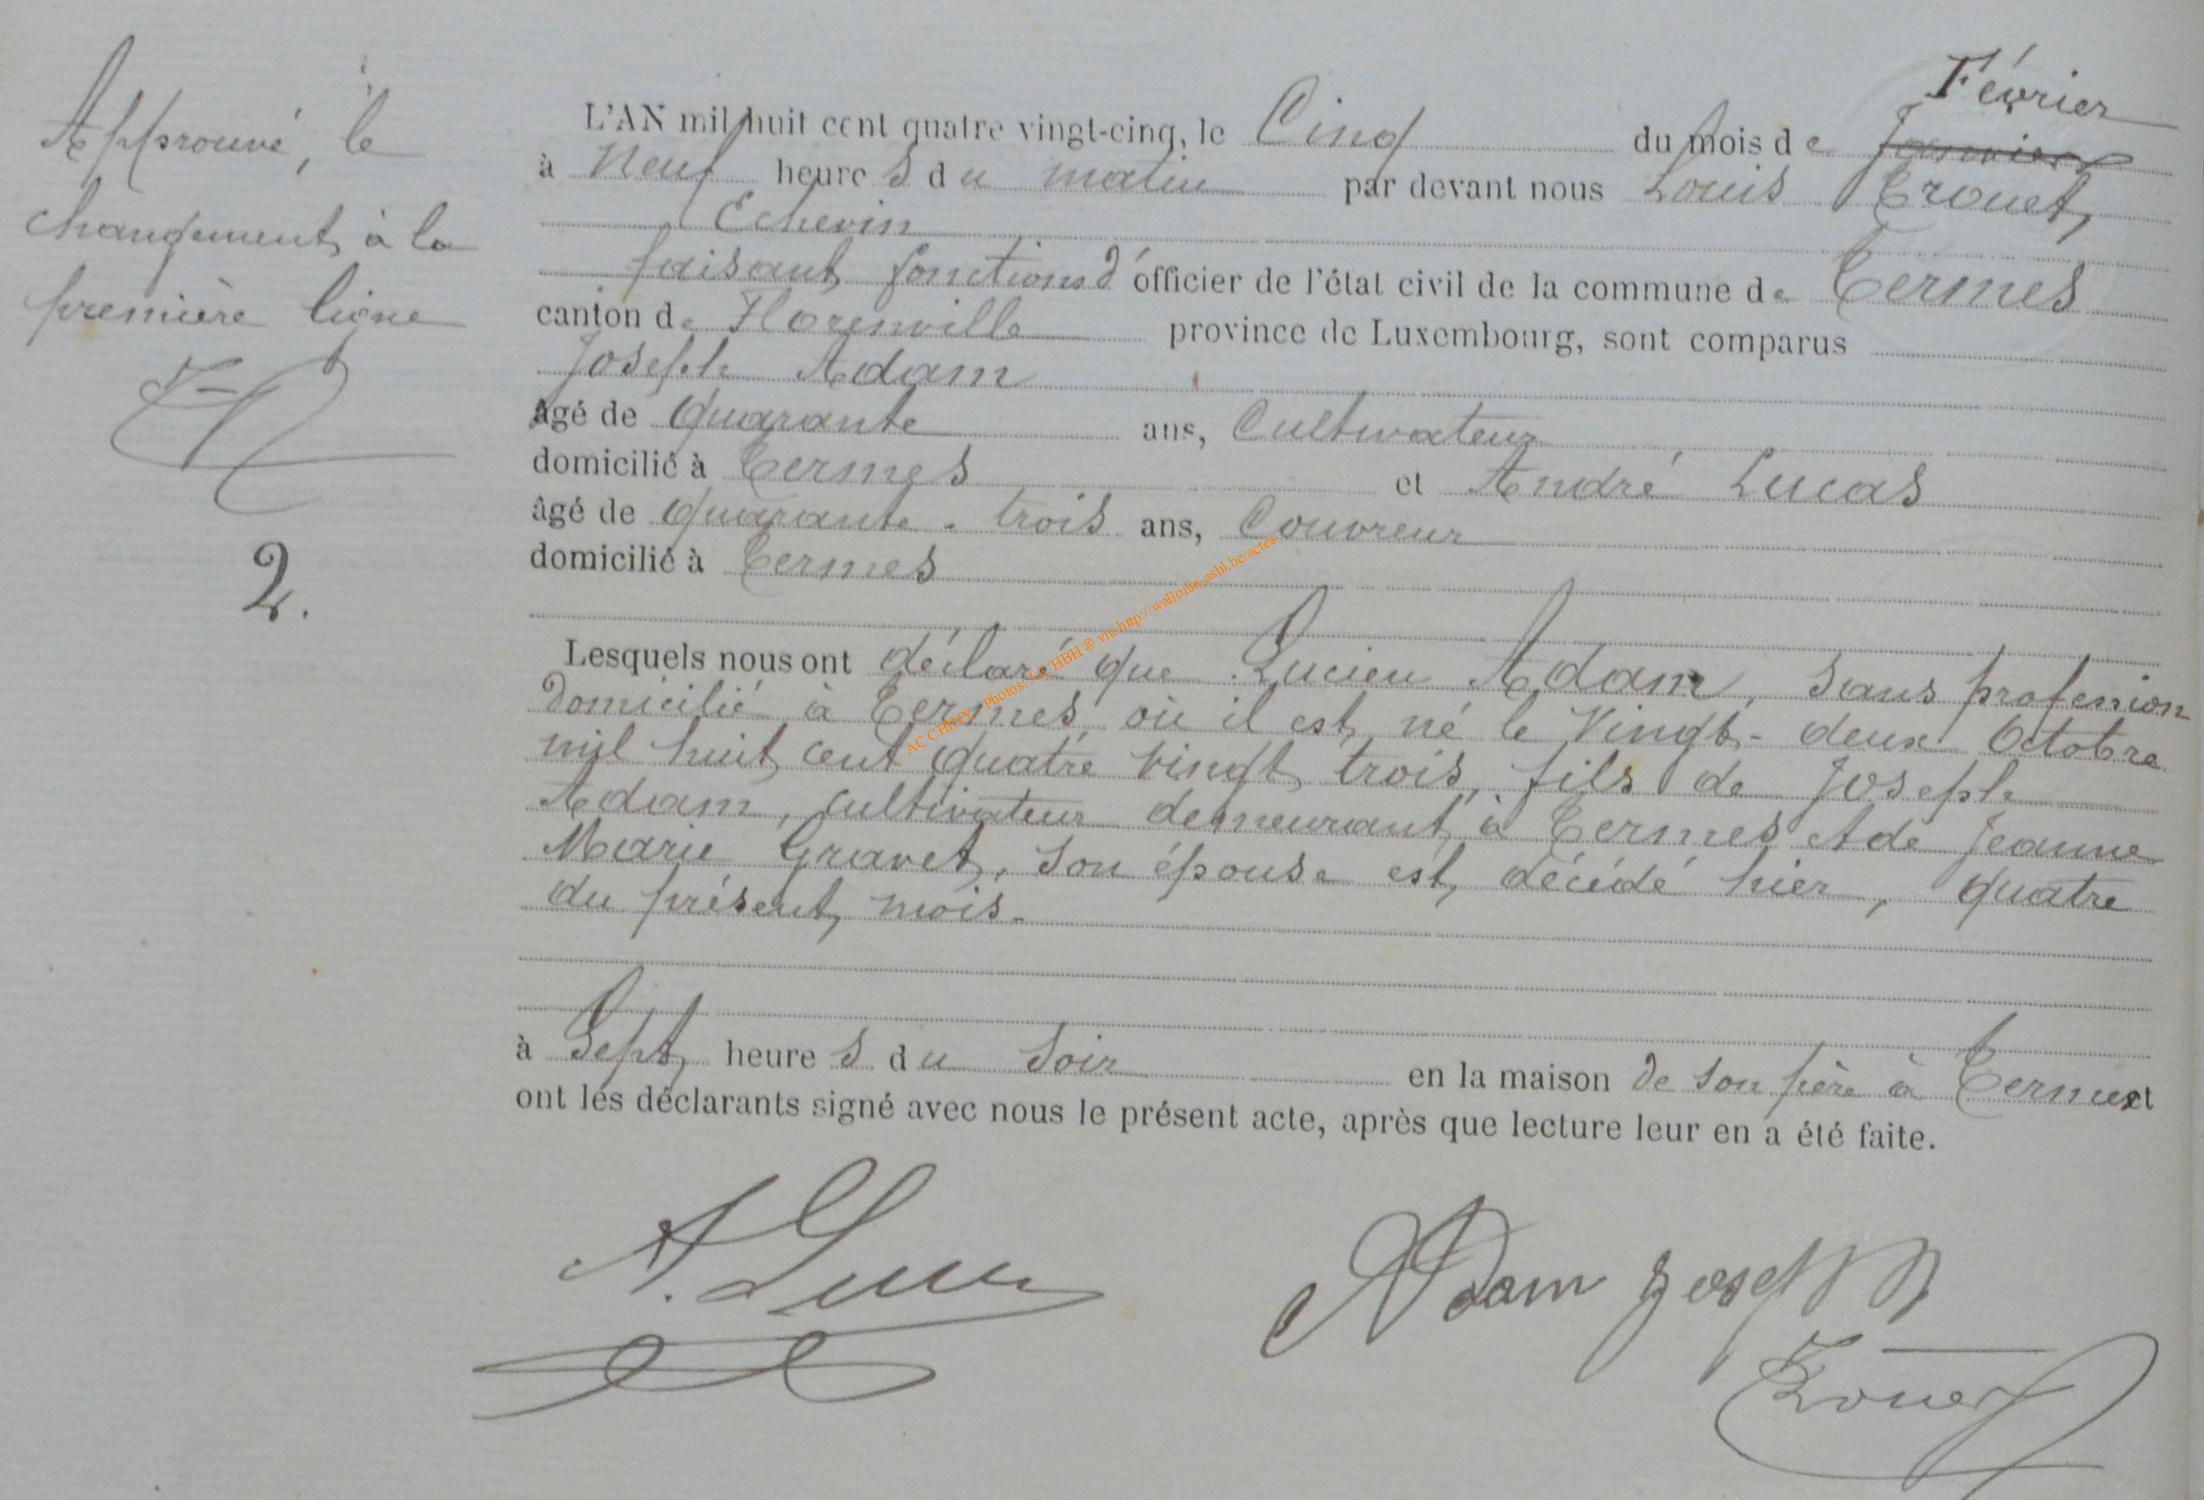 Approuvé, le
changement à la
première ligne
2.
Février
L'AN mil huit cent quatre vingt-cinq, le Cinq du mois de Janvier
à Neuf heures du matin par devant nous Louis Trouet,
Echevin
faisant fonctions d'officier de l'état civil de la commune de Termes
canton de Florenville province de Luxembourg, sont comparus
Joseph Adam
âgé de quarante ans, Cultivateur
domicilié à Termes et André Lucas
âgé de quarante-trois ans, Couvreur
domicilié à Termes
Lesquels nous ont déclaré que Lucien Adam, sans profession
domicilié à Termes où il est né le Vingt-deux Octobre
mil huit cent quatre vingt trois, fils de Joseph
Adam, cultivateur demeurant à Termes et de Jeanne
Marie Gravet, son épouse est décédé hier, quatre
du présent mois.
à Sept heures du soir en la maison de son père à Termes et
ont les déclarants signé avec nous le présent acte, après que lecture leur en a été faite.
A. Lucas
Adam Joseph
Trouet
AC CHINY - Photos: LG HBH ® via http://wallonia-asbl.be/actes